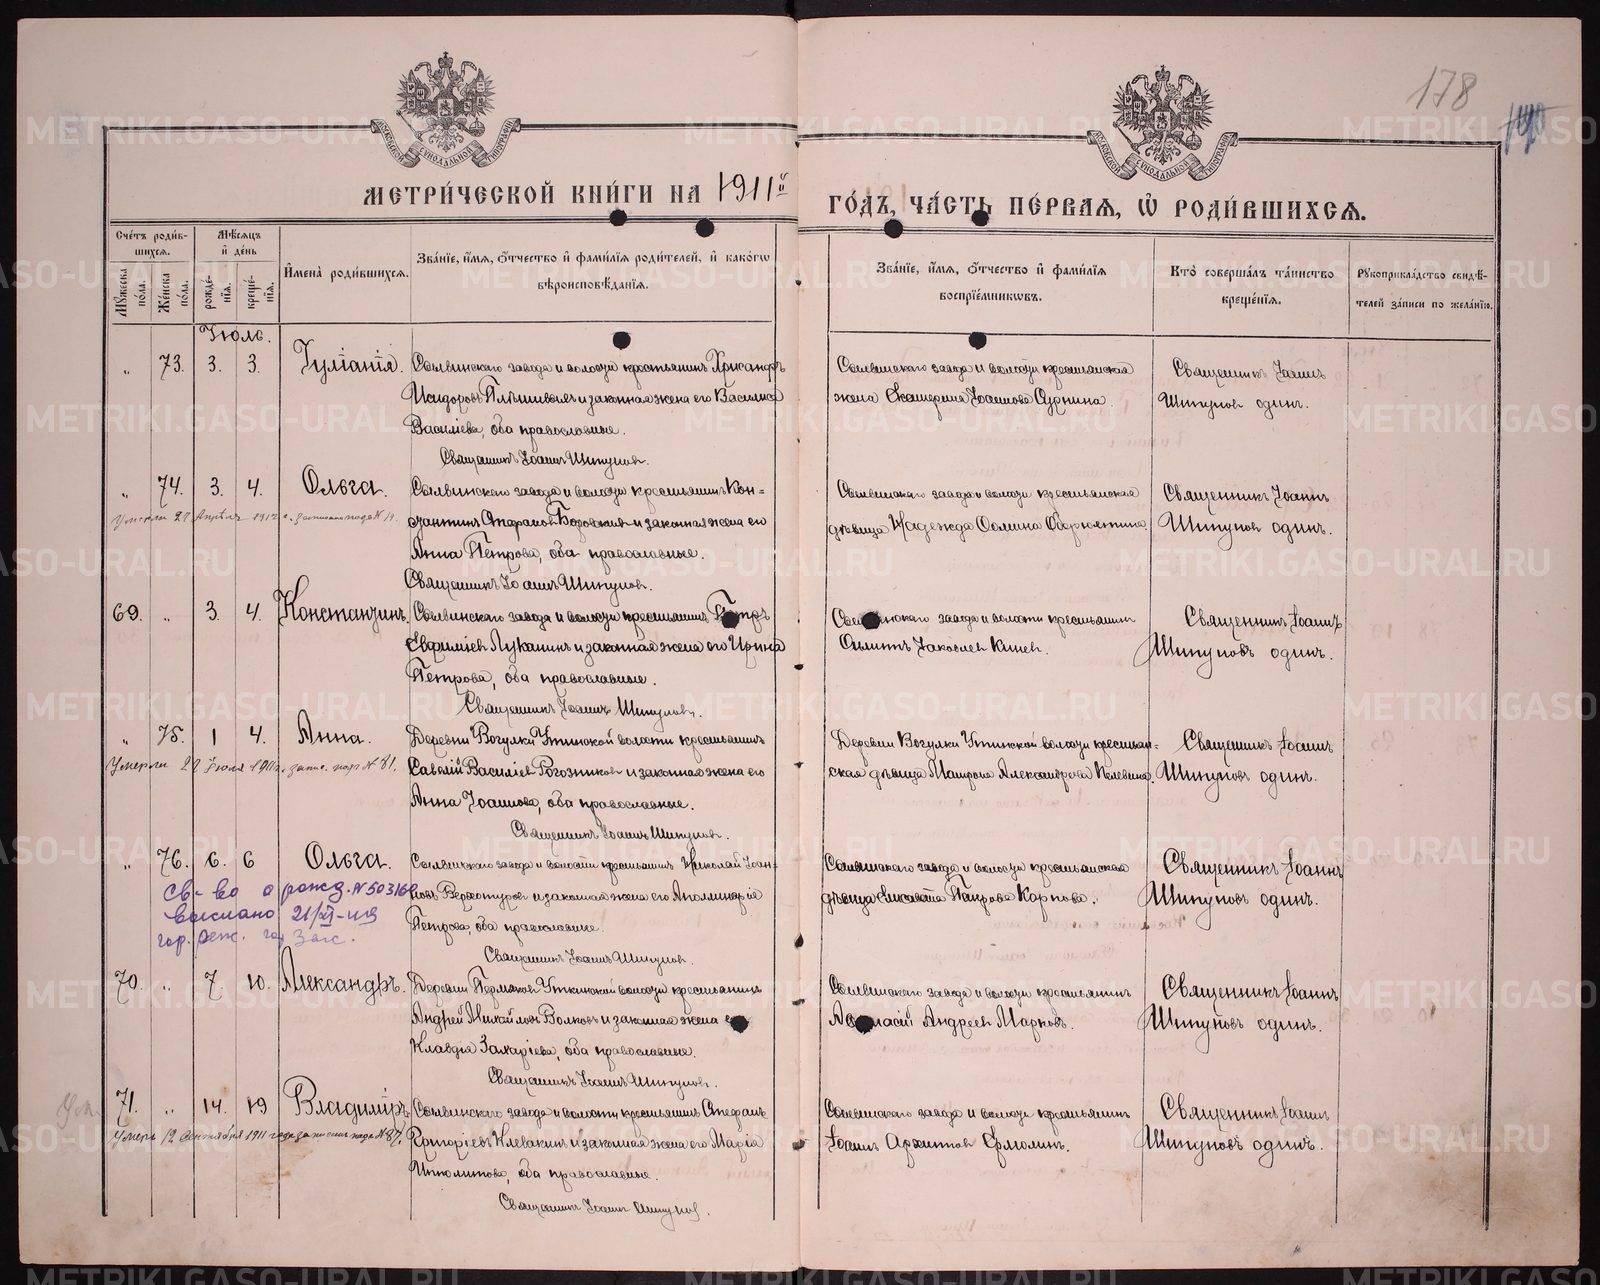 178
МЕТРИ́ЧЕСКОЙ КНИ́ГИ НА 1911й
ГО́ДЪ, ЧА́СТЬ ПЕ́РВАѦ, Ѡ РОДИ́ВШИХСѦ.
Сче́тъ роди́в-
шихсѧ.
Мꙋ́жеска по́ла.
Же́нска по́ла.
Мѣ́сѧцъ и де́нь
рожде́-
нїѧ.
креще́-
нїѧ.
И҆мена̀ роди́вшихсѧ.
Зва́нїе, и҆́мѧ, ѻ҆́тчество и҆ фами́лїѧ роди́телей, и҆ како́гѡ
вѣроисповѣ́данїѧ.
Зва́нїе, и҆́мѧ, ѻ҆́тчество и҆ фами́лїѧ
воспрїе́мникѡвъ.
Кто̀ соверша́лъ та́инство
креще́нїѧ.
Рꙋкоприкла́дство свидѣ́-
телей за́писи по жела́нїю.
Іюль.
„ 73. 3. 3. Іуліанія. Сылвинскаго завода и волости крестьянинъ Хрисанфъ
Исидоровъ и законная жена его Василиса
Василіева, оба православные.
Священникъ Іоаннъ Шипуновъ.
Сылвинскаго завода и волости крестьянская
жена Екатерина Іоаннова Сурнина.
Священникъ Іоаннъ
Шипуновъ одинъ.
„ 74. 3. 4. Ольга. Сылвинскаго завода и волости крестьянинъ Кон-
стантинъ Стефановъ Боровскихъ и законная жена его
Анна Петрова, оба православные.
Священникъ Іоаннъ Шипуновъ.
Умерла 27 Апрѣля 1912 г. записана подъ № 19.
Сылвинскаго завода и волости крестьянская
дѣвица Надежда Обрюхтина
Священникъ Іоаннъ
Шипуновъ одинъ.
69. „ 3. 4. Константинъ. Сылвинскаго завода и волости крестьянинъ Петръ
Евфиміевъ Луканинъ и законная жена его Ирина
Петрова, оба православные.
Священникъ Іоаннъ Шипуновъ.
Сылвинскаго завода и волости крестьянинъ
Филиппъ Іаковлевъ
Священникъ Іоаннъ
Шипуновъ одинъ.
„ 75. 1 4. Анна. Деревни Вогулки Уткинской волости крестьянинъ
Савватій Василіевъ Рогозниковъ и законная жена его
Анна Іоаннова, оба православные.
Священникъ Іоаннъ Шипуновъ.
Умерла 22 Іюля 1911 г. запис. подъ № 81.
Деревни Вогулки Уткинской волости крестьян-
ская дѣвица Матрона Александрова Пелевина.
Священникъ Іоаннъ
Шипуновъ одинъ.
„ 76. 6. 6 Ольга. Сылвинскаго завода и волости крестьянинъ Николай Іоан-
новъ Верхотуровъ и законная жена его Аполлинарія
Петрова, оба православные.
Священникъ Іоаннъ Шипуновъ.
Св-во о рожд. № 503160
выслано 21/XI-
гор. Загс.
Сылвинскаго завода и волости крестьянская
дѣвица Елисавета Петрова Карпова.
Священникъ Іоаннъ
Шипуновъ одинъ.
70. „ 7 10. Александръ. Деревни Пермяковъ Уткинской волости крестьянинъ
Андрей Михайловъ Волковъ и законная жена его
Клавдія Захаріева, оба православные.
Священникъ Іоаннъ Шипуновъ.
Сылвинскаго завода и волости крестьянинъ
Афанасій Андреевъ Марковъ.
Священникъ Іоаннъ
Шипуновъ одинъ.
Ум. 71. „ 14. 19 Владиміръ. Сылвинскаго завода и волости крестьянинъ Стефанъ
Григоріевъ Клевакинъ и законная жена его Марія
Ипполитова, оба православные.
Священникъ Іоаннъ Шипуновъ.
Умеръ 12 Сентября 1911 года записанъ подъ № 87.
Сылвинскаго завода и волости крестьянинъ
Іоаннъ Архиповъ Ермолинъ.
Священникъ Іоаннъ
Шипуновъ одинъ.
METRIKI.GASO-URAL.RU